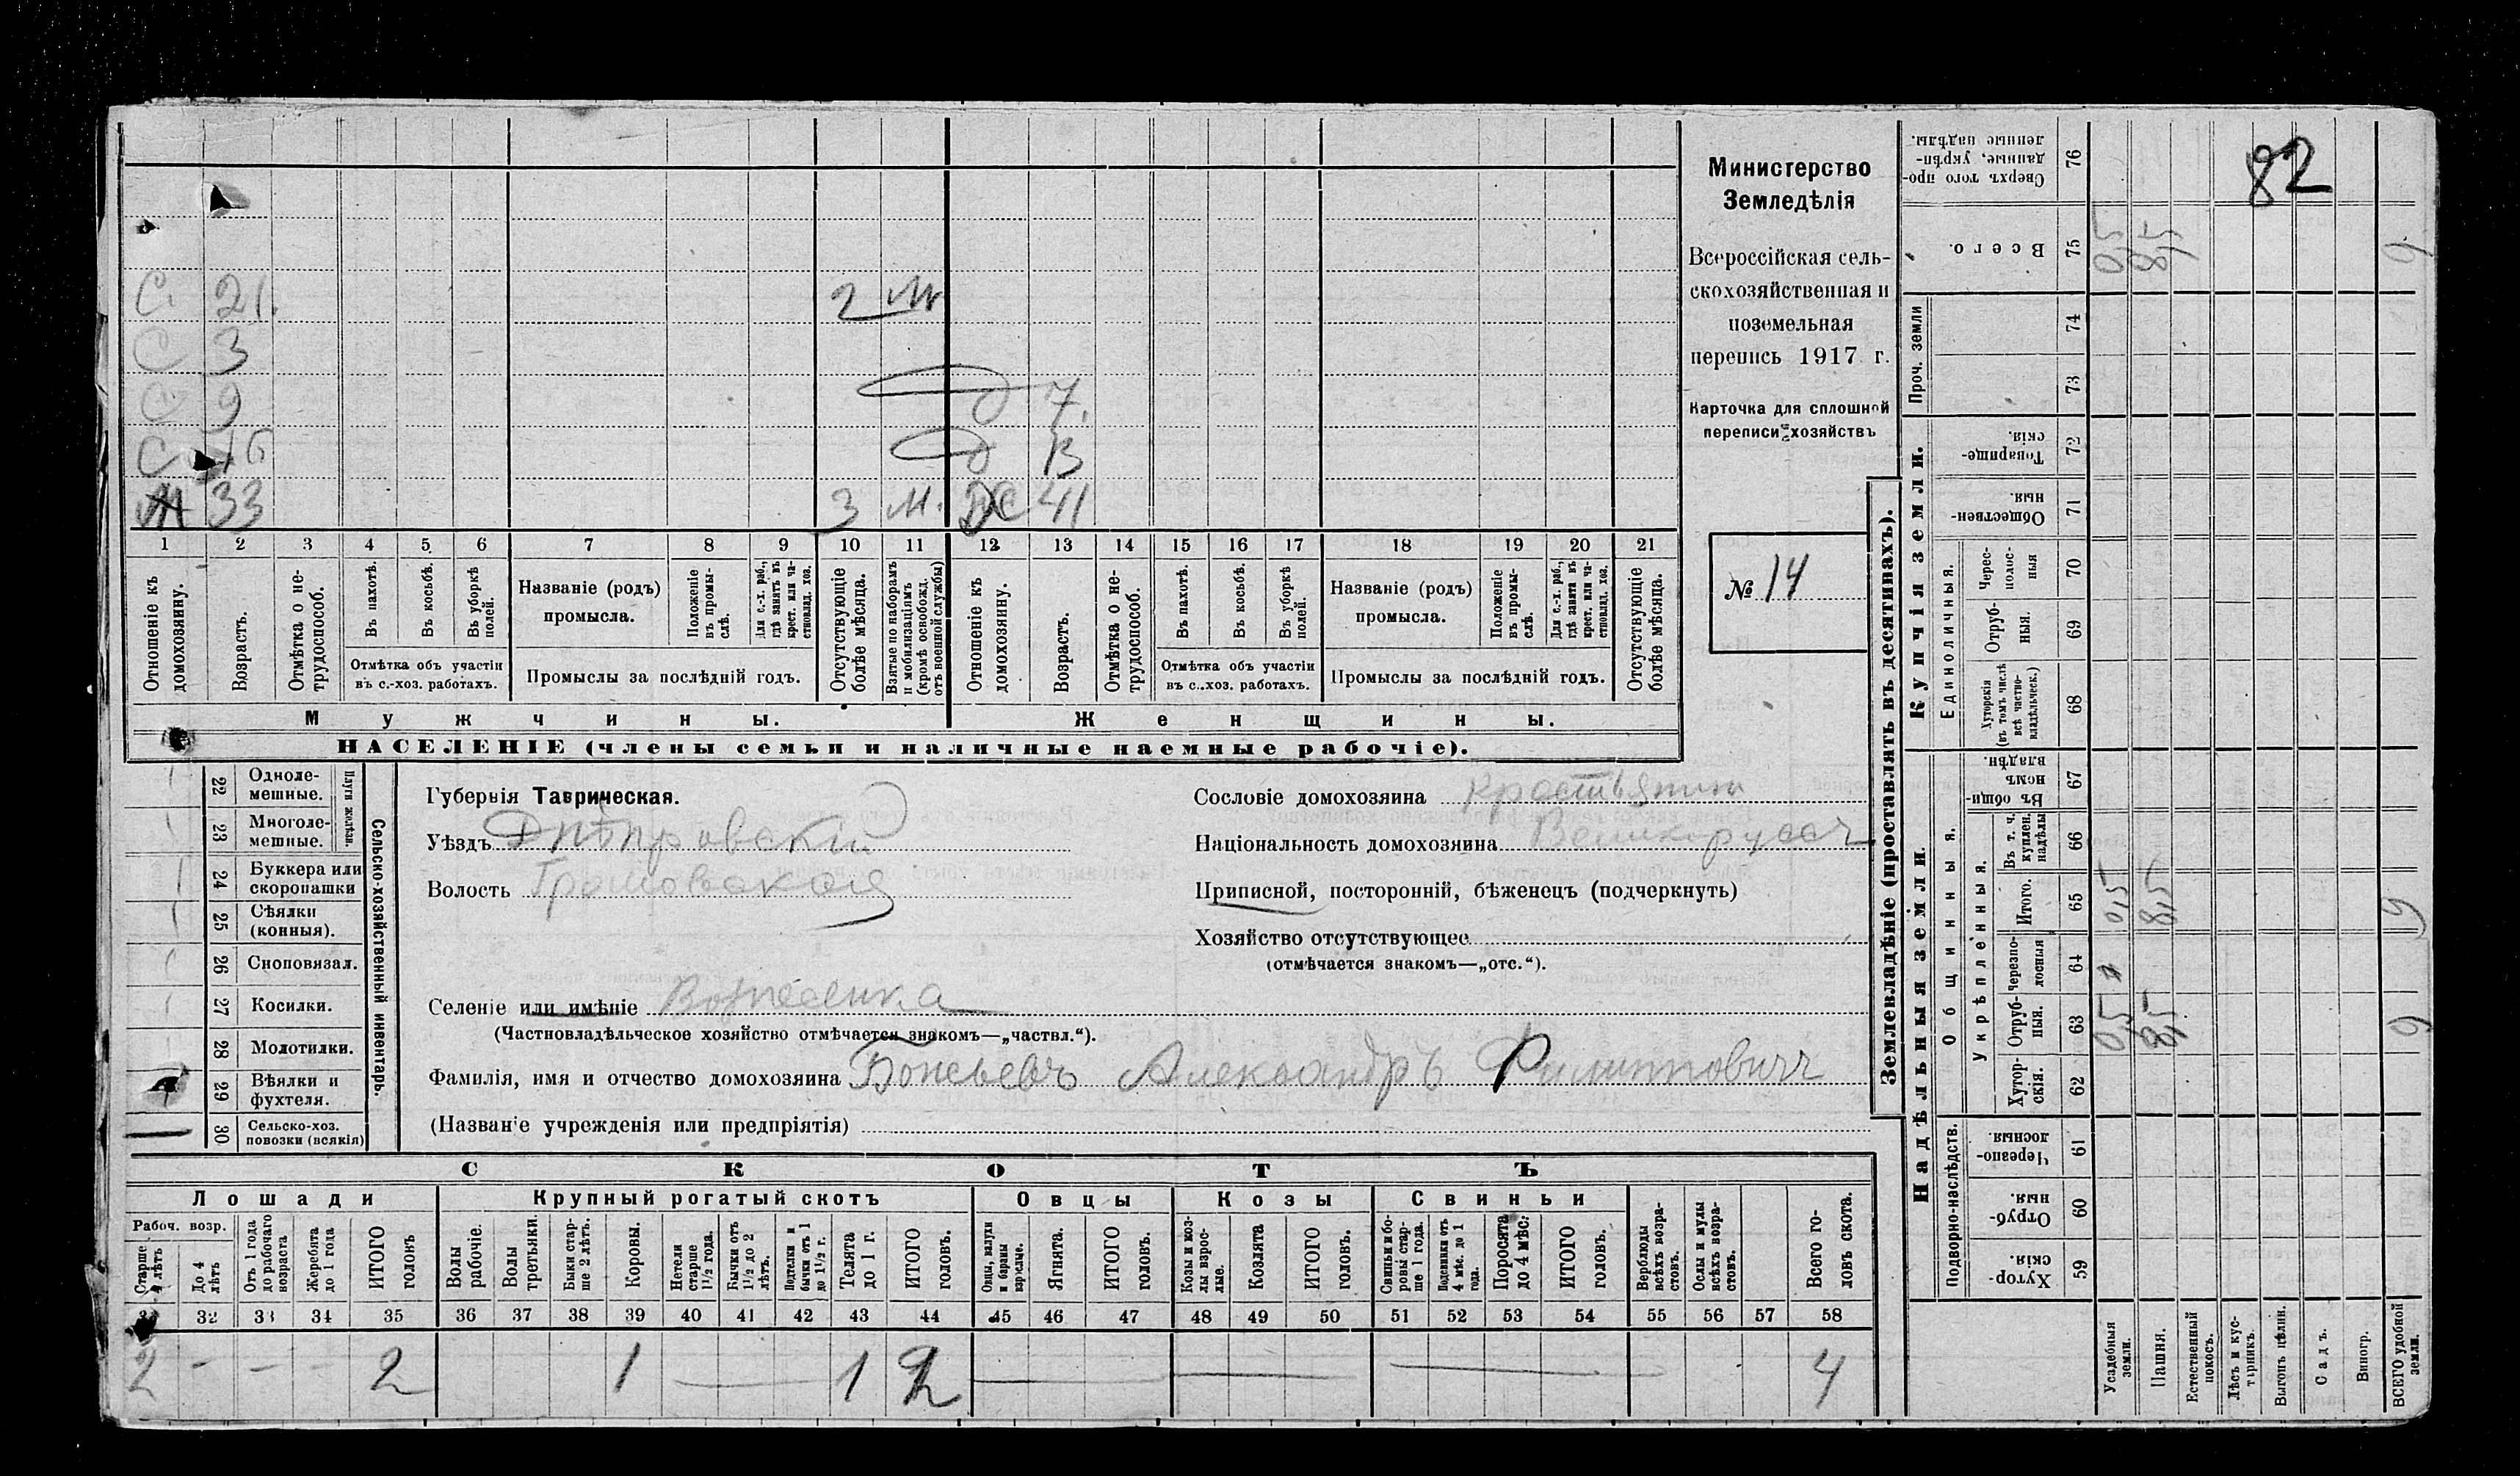 82
Министерство
Земледѣлія
Всероссійская сель-
скохозяйственная и
поземельная
перепись 1917 г.
Карточка для сплошной
переписи хозяйствъ
№ 14
С 21. 2 М
С 3
С 9 д 7.
С 16 д 13
33 3 М. 41
1 2 3 4 5 6 7 8 9 10 11 12 13 14 15 16 17 18 19 20 21
Отношеніе къ домохозяину.
Возрастъ.
Отмѣтка о не-трудоспособ.
Въ пахотѣ.
Въ косьбѣ.
Въ уборкѣ полей.
Отмѣтка объ участіи
въ с.-хоз. работахъ.
Названіе (родъ)
промысла.
Положеніе въ промы-слѣ.
Для с.-х. раб., гдѣ занятъ въ крест. или ча-стновлад. хоз.
Промыслы за послѣдній годъ.
Отсутствующіе болѣе мѣсяца.
Взятые по наборамъ и мобилизаціямъ (кромѣ освобожд. отъ военной службы)
Отношеніе къ домохозяину.
Возрастъ.
Отмѣтка о не-трудоспособ.
Въ пахотѣ.
Въ косьбѣ.
Въ уборкѣ полей.
Отмѣтка объ участіи
въ с.-хоз. работахъ.
Названіе (родъ)
промысла.
Положеніе въ промы-слѣ.
Для с.-х. раб., гдѣ занята въ крест. или ча-стновлад. хоз.
Промыслы за послѣдній годъ.
Отсутствующіе болѣе мѣсяца.
Мужчины. Женщины.
НАСЕЛЕНІЕ (члены семьи и наличные наемные рабочіе).
Сельско-хозяйственный инвентарь.
Плуги желѣзн.
22 Одноле-мешные.
23 Многоле-мешные.
24 Буккера или скоропашки
25 Сѣялки (конныя).
26 Сноповязал.
27 Косилки.
28 Молотилки.
29 Вѣялки и фухтеля.
30 Сельско-хоз. повозки (всякія)
Губернія Таврическая.
Уѣздъ Днѣпровскій
Волость Громовская
Селеніе или имѣніе Вознесенка
(Частновладѣльческое хозяйство отмѣчается знакомъ—„частвл.“).
Фамилія, имя и отчество домохозяина Александръ Филипповичъ
(Названіе учрежденія или предпріятія)
Сословіе домохозяина крестьянин
Національность домохозяина Великорусс
Приписной, посторонній, бѣженецъ (подчеркнуть)
Хозяйство отсутствующее
(отмѣчается знакомъ—„отс.“).
СКОТЪ
Лошади Крупный рогатый скотъ Овцы Козы Свиньи
Рабоч. возр.
Старше 4 лѣтъ
До 4 лѣтъ
Отъ 1 года до рабочаго возраста
Жеребята до 1 года
ИТОГО головъ
Волы рабочіе.
Волы третьяки.
Быки стар-ше 2 лѣтъ.
Коровы.
Нетели старше 1½ года.
Бычки отъ 1½ до 2 лѣтъ.
Подтелки и бычки отъ 1 до 1½ г.
Телята до 1 г.
ИТОГО головъ.
Овцы, валухи и бараны взрослые.
Ягнята.
ИТОГО головъ.
Козы и коз-лы взрос-лые.
Козлята
ИТОГО головъ.
Свиньи и бо-ровы стар-ше 1 года.
Подсвинки отъ 4 мѣс. до 1 года.
Поросята до 4 мѣс.
ИТОГО головъ.
Верблюды всѣхъ возра-стовъ.
Ослы и мулы всѣхъ возра-стовъ.
Всего го-ловъ скота.
32 33 34 35 36 37 38 39 40 41 42 43 44 45 46 47 48 49 50 51 52 53 54 55 56 57 58
2 - - - 2 1 1 2 4
Землевладѣніе (проставлять въ десятинахъ).
Надѣльныя земли.
Купчія земли.
Проч. земли
Подворно-наслѣдств.
Общинныя.
Укрѣпленныя.
Единоличныя.
Хутор-скія. 59
Отруб-ныя. 60
Черезпо-лосныя. 61
Хутор-скія. 62
Отруб-ныя. 63 0,5 8,5 9
Черезпо-лосныя 64
Итого. 65 0,5 8,5 9
Въ т. ч. куплен. надѣлы 66
Въ общи-номъ владѣн. 67
Хуторскія (въ томъ числѣ всѣ частно-владѣльческ.) 68
Отруб-ныя. 69
Черес-полос-ныя 70
Обществен-ныя. 71
Товарище-скія. 72
73
74
Всего. 75 0,5 8,5 9
Сверхъ того про-данные, укрѣп-ленные надѣлы. 76
Усадебныя земли.
Пашня.
Естественный покосъ.
Лѣсъ и кус-тарникъ.
Выгонъ цѣлин.
Садъ.
Виногр.
ВСЕГО удобной земли.